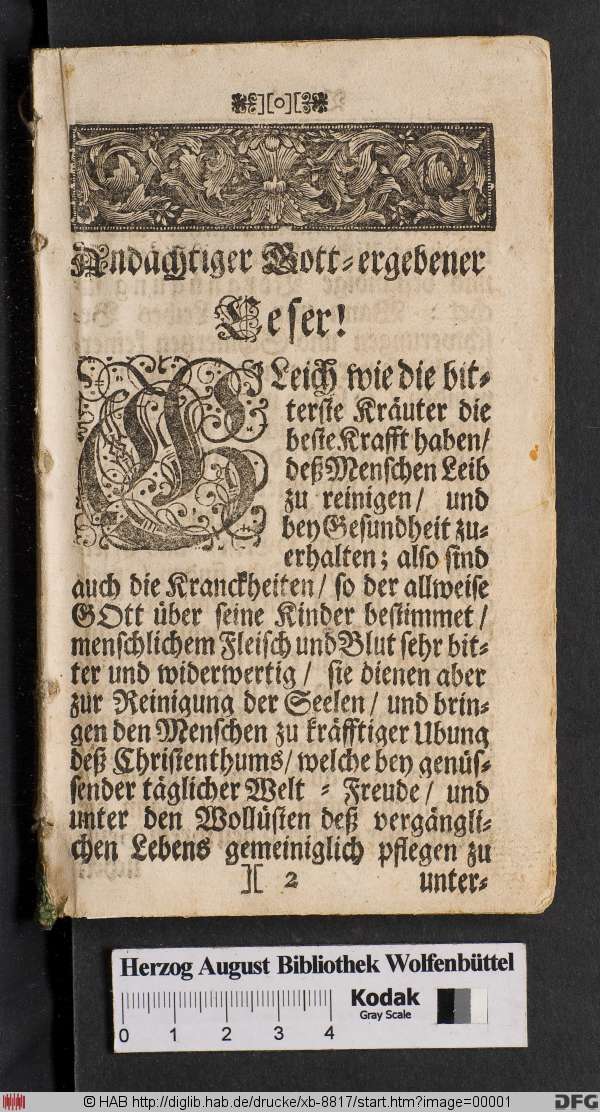 ][o][
Andächtiger Gott-ergebener
Leser!
GLeich wie die bit-
terste Kräuter die
beste Krafft haben/
deß Menschen Leib
zu reinigen/ und
bey Gesundheit zu-
erhalten; also sind
auch die Kranckheiten/ so der allweise
GOtt über seine Kinder bestimmet/
menschlichem Fleisch und Blut sehr bit-
ter und widerwertig/ sie dienen aber
zur Reinigung der Seelen/ und brin-
gen den Menschen zu kräfftiger Ubung
deß Christenthums/ welche bey genüs-
sender täglicher Welt-Freude/ und
unter den Wollüsten deß vergängli-
chen Lebens gemeiniglich pflegen zu
][ 2 unter-
Herzog August Bibliothek Wolfenbüttel
Kodak
Gray Scale
0 1 2 3 4
© HAB http://diglib.hab.de/drucke/xb-8817/start.htm?image=00001
DFG